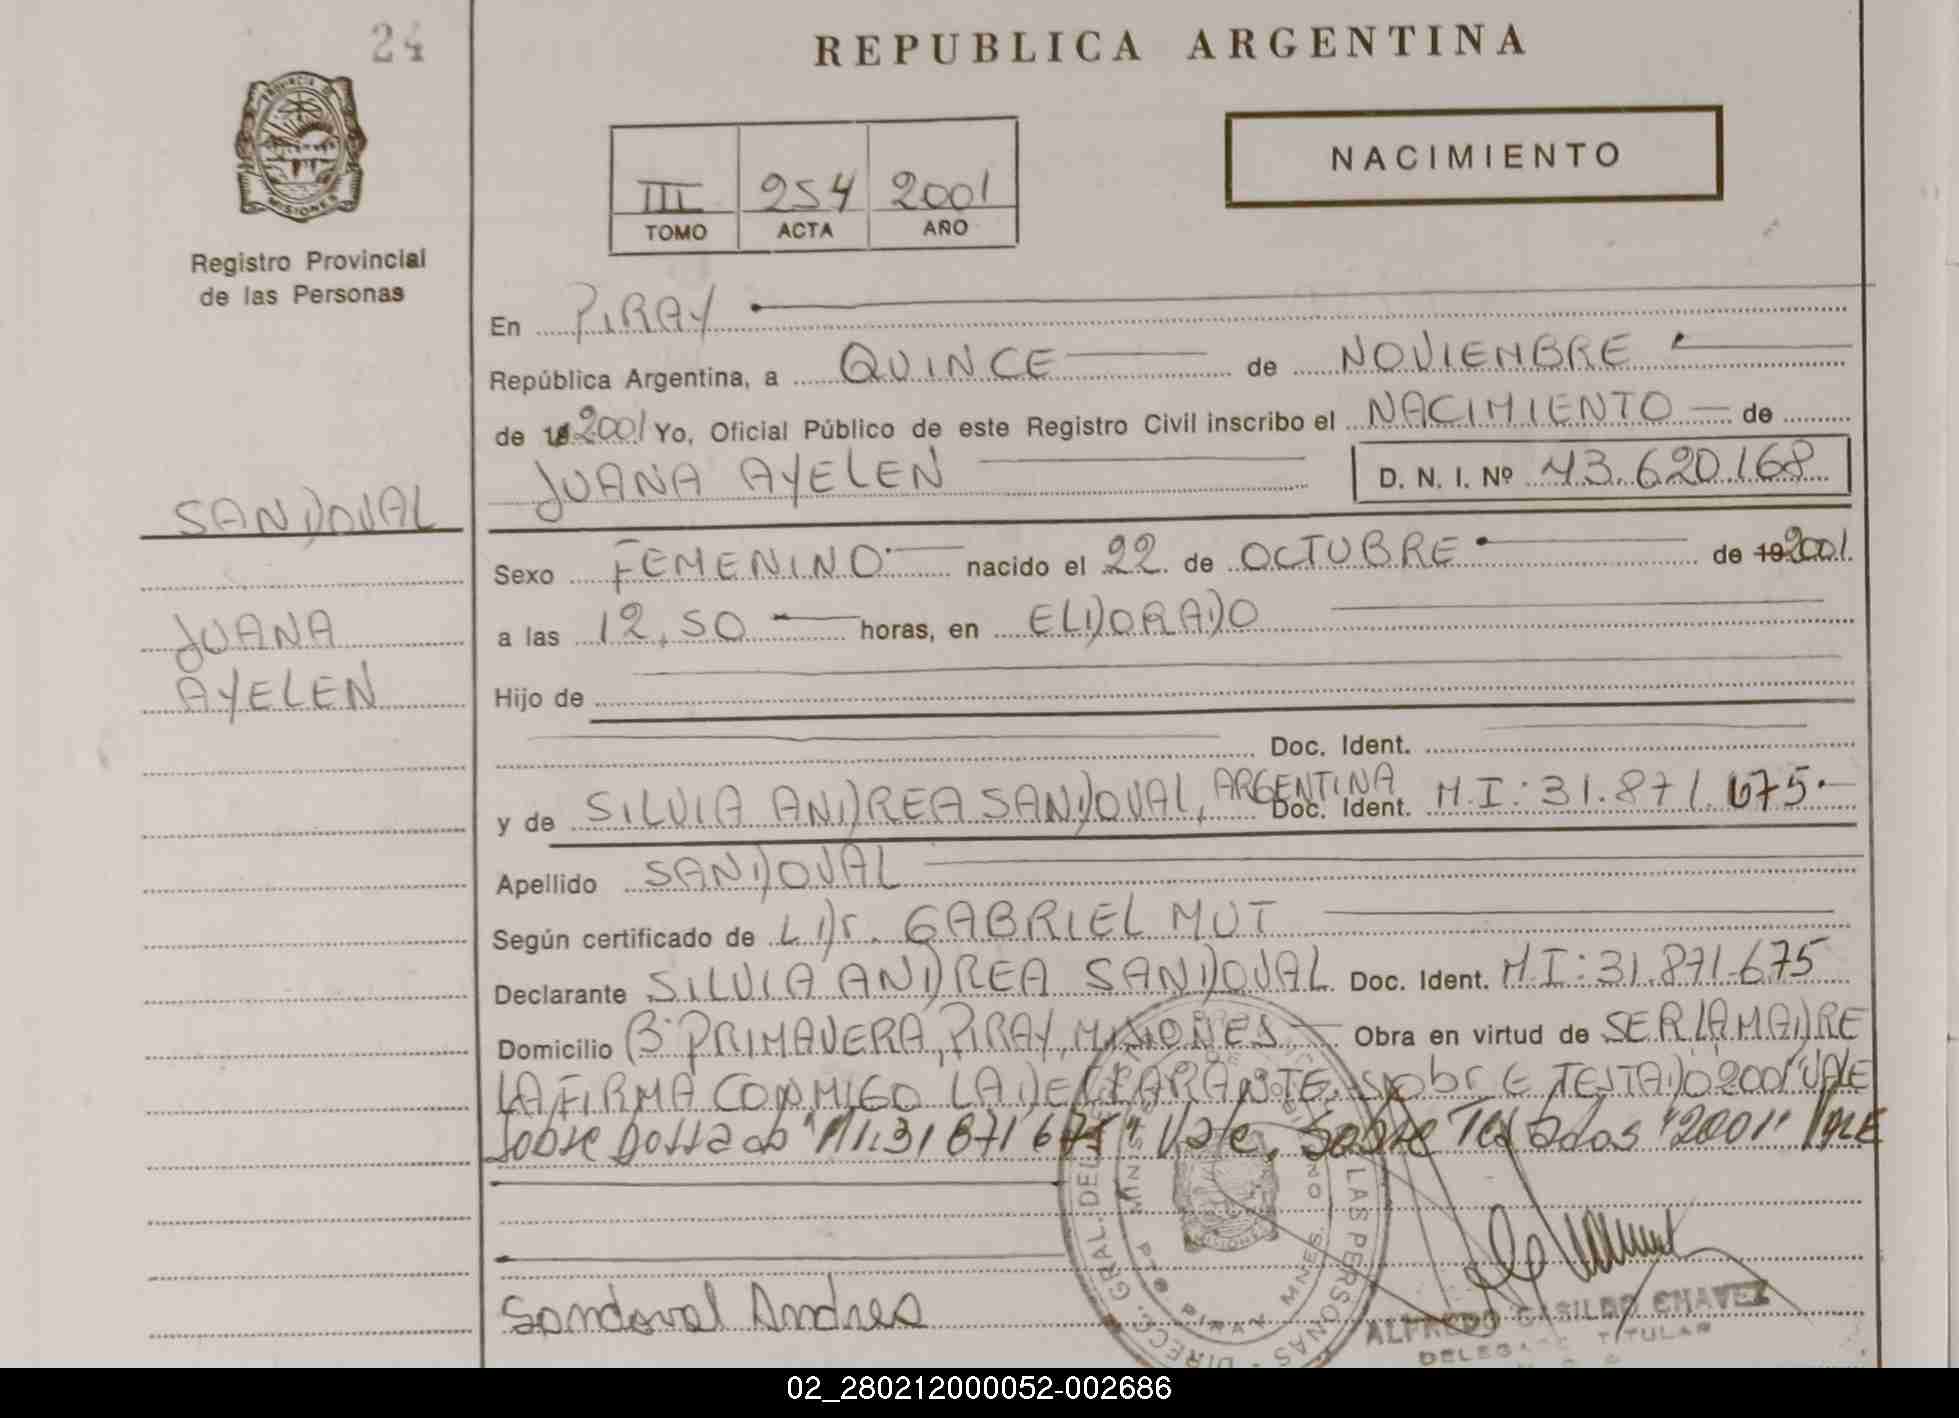 24
REPUBLICA ARGENTINA
PROVINCIA DE
MISIONES
Registro Provincial
de las Personas
III 254 2001
TOMO ACTA AÑO
NACIMIENTO
En PIRAY
República Argentina, a QUINCE de NOVIEMBRE
de 19 2001 Yo, Oficial Público de este Registro Civil inscribo el NACIMIENTO de
JUANA AYELEN D. N. I. Nº 43.620.168
SANDOVAL
JUANA
AYELEN
Sexo FEMENINO nacido el 22 de OCTUBRE de 19 2001
a las 12,50 horas, en ELDORADO
Hijo de
Doc. Ident.
y de SILVIA ANDREA SANDOVAL, ARGENTINA Doc. Ident. M.I: 31.871.675
Apellido SANDOVAL
Según certificado de L Dr. GABRIEL MUT
Declarante SILVIA ANDREA SANDOVAL Doc. Ident. M.I: 31.871.675
Domicilio Bº PRIMAVERA, PIRAY, MISIONES Obra en virtud de SER LA MADRE
LA FIRMA CONMIGO LA DECLARANTE. SobrE TESTADO 2001 VALE
Sobre Borrado "M.I.31871675" Vale. Sobre Testados "2001" Vale
Sandoval Andrea
DIRECC. GRAL. DEL LAS PERSONAS
PTO PIRAY MNES.
MISIONES
ALFREDO CASILDO CHAVEZ
TITULAR
02_280212000052-002686